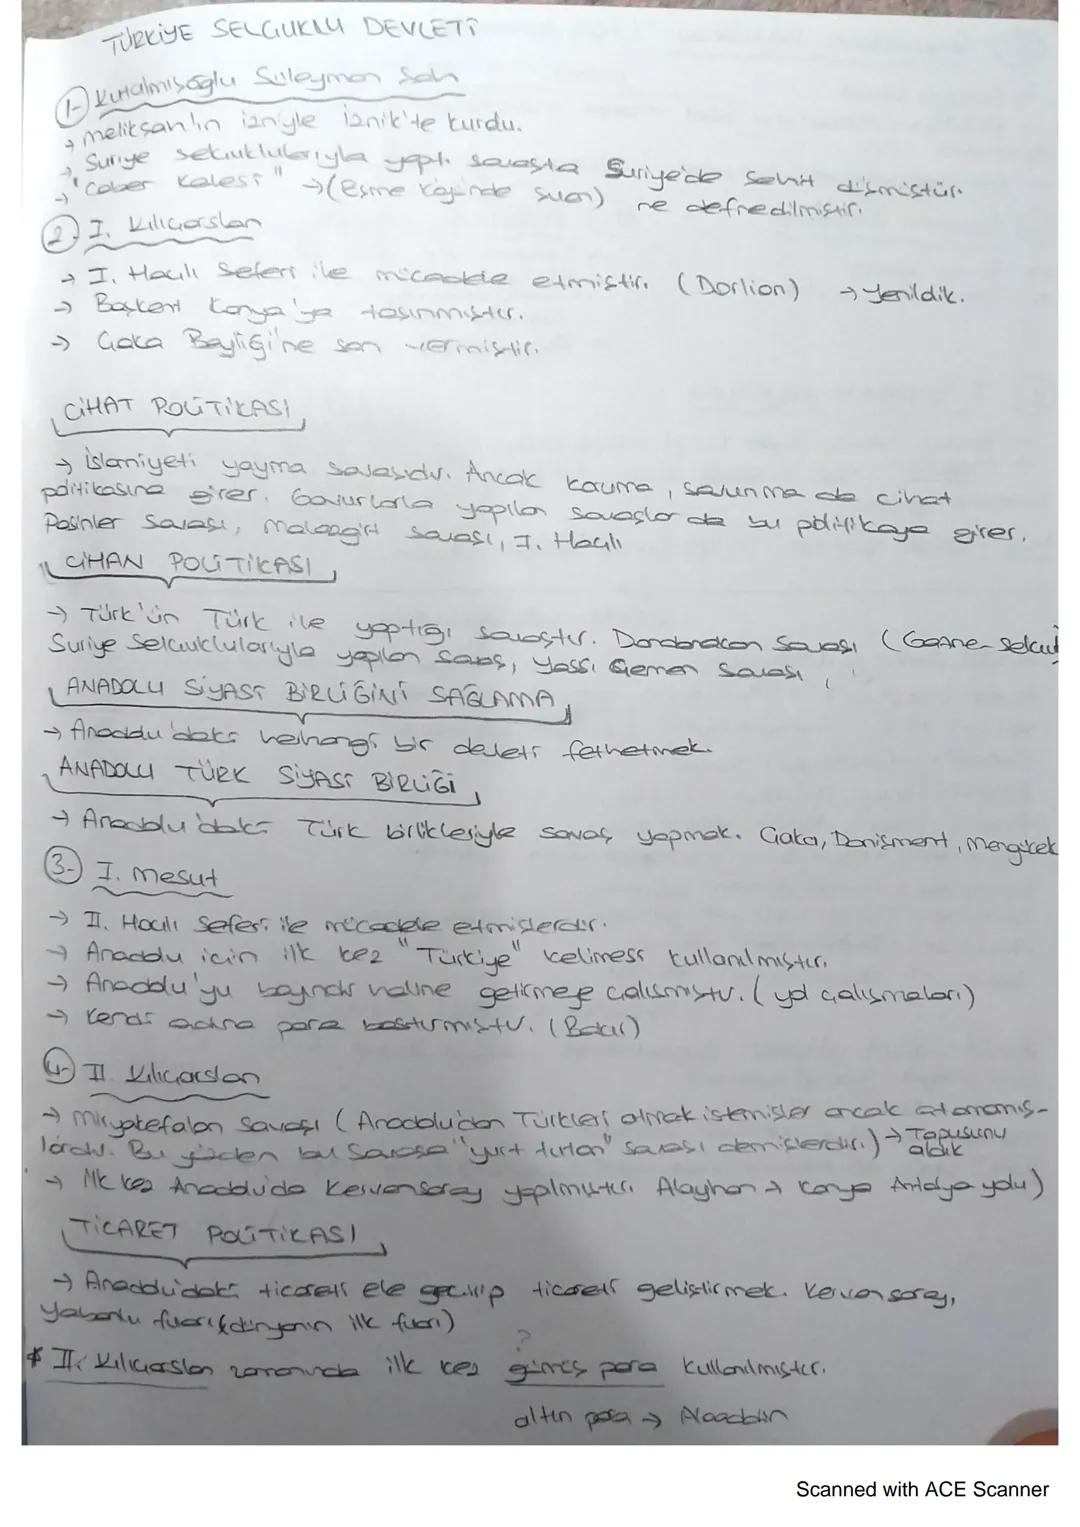 TÜRKİYE SELÇUKLU DEVLETİ
1-) Kutalmışoğlu Süleyman Şah
→ Melikşah'ın izniyle İznik'te kurdu.
→ Suriye Selçuklularıyla yaptı savaşta Suriye'de şehit düşmüştür.
→ "Caber Kalesi" → (Eşme köyünde şuan) ne defnedilmiştir.
2-) I. Kılıçarslan
→ I. Haçlı Seferi ile mücadele etmiştir. (Dorlion) → Yenildik.
→ Başkent Konya'ya taşınmıştır.
→ Çaka Beyliği'ne son vermiştir.
CİHAT POLİTİKASI
→ İslamiyeti yayma savaşıdır. Ancak koruma, savunma da cihat
politikasına girer. Gavurlarla yapılan savaşlar da bu politikaya girer.
Pasinler Savaşı, Malazgirt Savaşı, I. Haçlı
CİHAN POLİTİKASI
→ Türk'ün Türk ile yaptığı savaştır. Dandanakan Savaşı (Gazne-Selçuk
Suriye Selçuklularıyla yapılan savaş, Yassı Çemen Savaşı,
ANADOLU SİYASİ BİRLİĞİNİ SAĞLAMA
→ Anadolu'daki herhangi bir devleti fethetmek.
ANADOLU TÜRK SİYASİ BİRLİĞİ
→ Anadolu'daki Türk birlikleriyle savaş yapmak. Çaka, Danişment, Mengücek
3-) I. Mesut
→ II. Haçlı Seferi ile mücadele etmişlerdir.
→ Anadolu için ilk kez "Türkiye" kelimesi kullanılmıştır.
→ Anadolu'yu bayındır haline getirmeye çalışmıştır. (yol çalışmaları)
→ Kendi adına para bastırmıştır. (Bakır)
4-) II. Kılıçarslan
→ Miryakefalon Savaşı (Anadolu'dan Türkleri atmak istemişler ancak atamamış-
lardır. Bu yüzden bu savaşa "yurt tutan" savaşı demişlerdir.) → Tapusunu aldık
→ İlk kez Anadolu'da Kervansaray yapılmıştır. Alayhan → Konya Antalya yolu)
TİCARET POLİTİKASI
→ Anadolu'daki ticareti ele geçirip ticareti geliştirmek. Kervansaray,
Yabanlu fuarı (dünyanın ilk fuarı)
* II. Kılıçarslan zamanında ilk kez gümüş para kullanılmıştır.
?
altın para → Alaaddin
Scanned with ACE Scanner